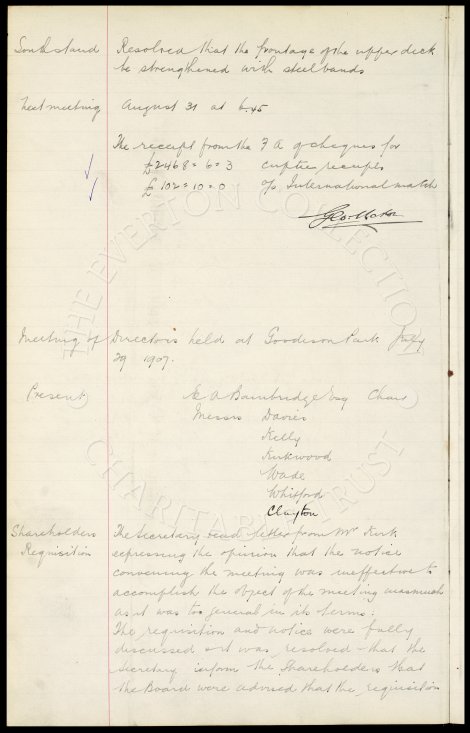 South stand Resolved that the frontage of the upper deck
be strengthened with steel bands
Next meeting August 31 at 6.45
The receipt from the F A of cheques for
£2468 = 6 = 3 cuptie receipts
£102 = 10 = 0 o/a International match
Geo Mahon
Meeting of Directors held at Goodison Park July
29 1907.
Present E A Bainbridge Esq Chair
Messrs Davies
Kelly
Kirkwood
Wade
Whitford
Clayton
Shareholders The Secretary read letter from Mr Kirk
Requisition expressing the opinion that the notice
convening the meeting was ineffective to
accomplish the object of the meeting inasmuch
as it was too general in its terms.
The requisition and notice were fully
discussed & it was resolved that the
Secretary inform the Shareholders that
the Board were advised that the requisition
THE EVERTON COLLECTION
CHARITABLE TRUST